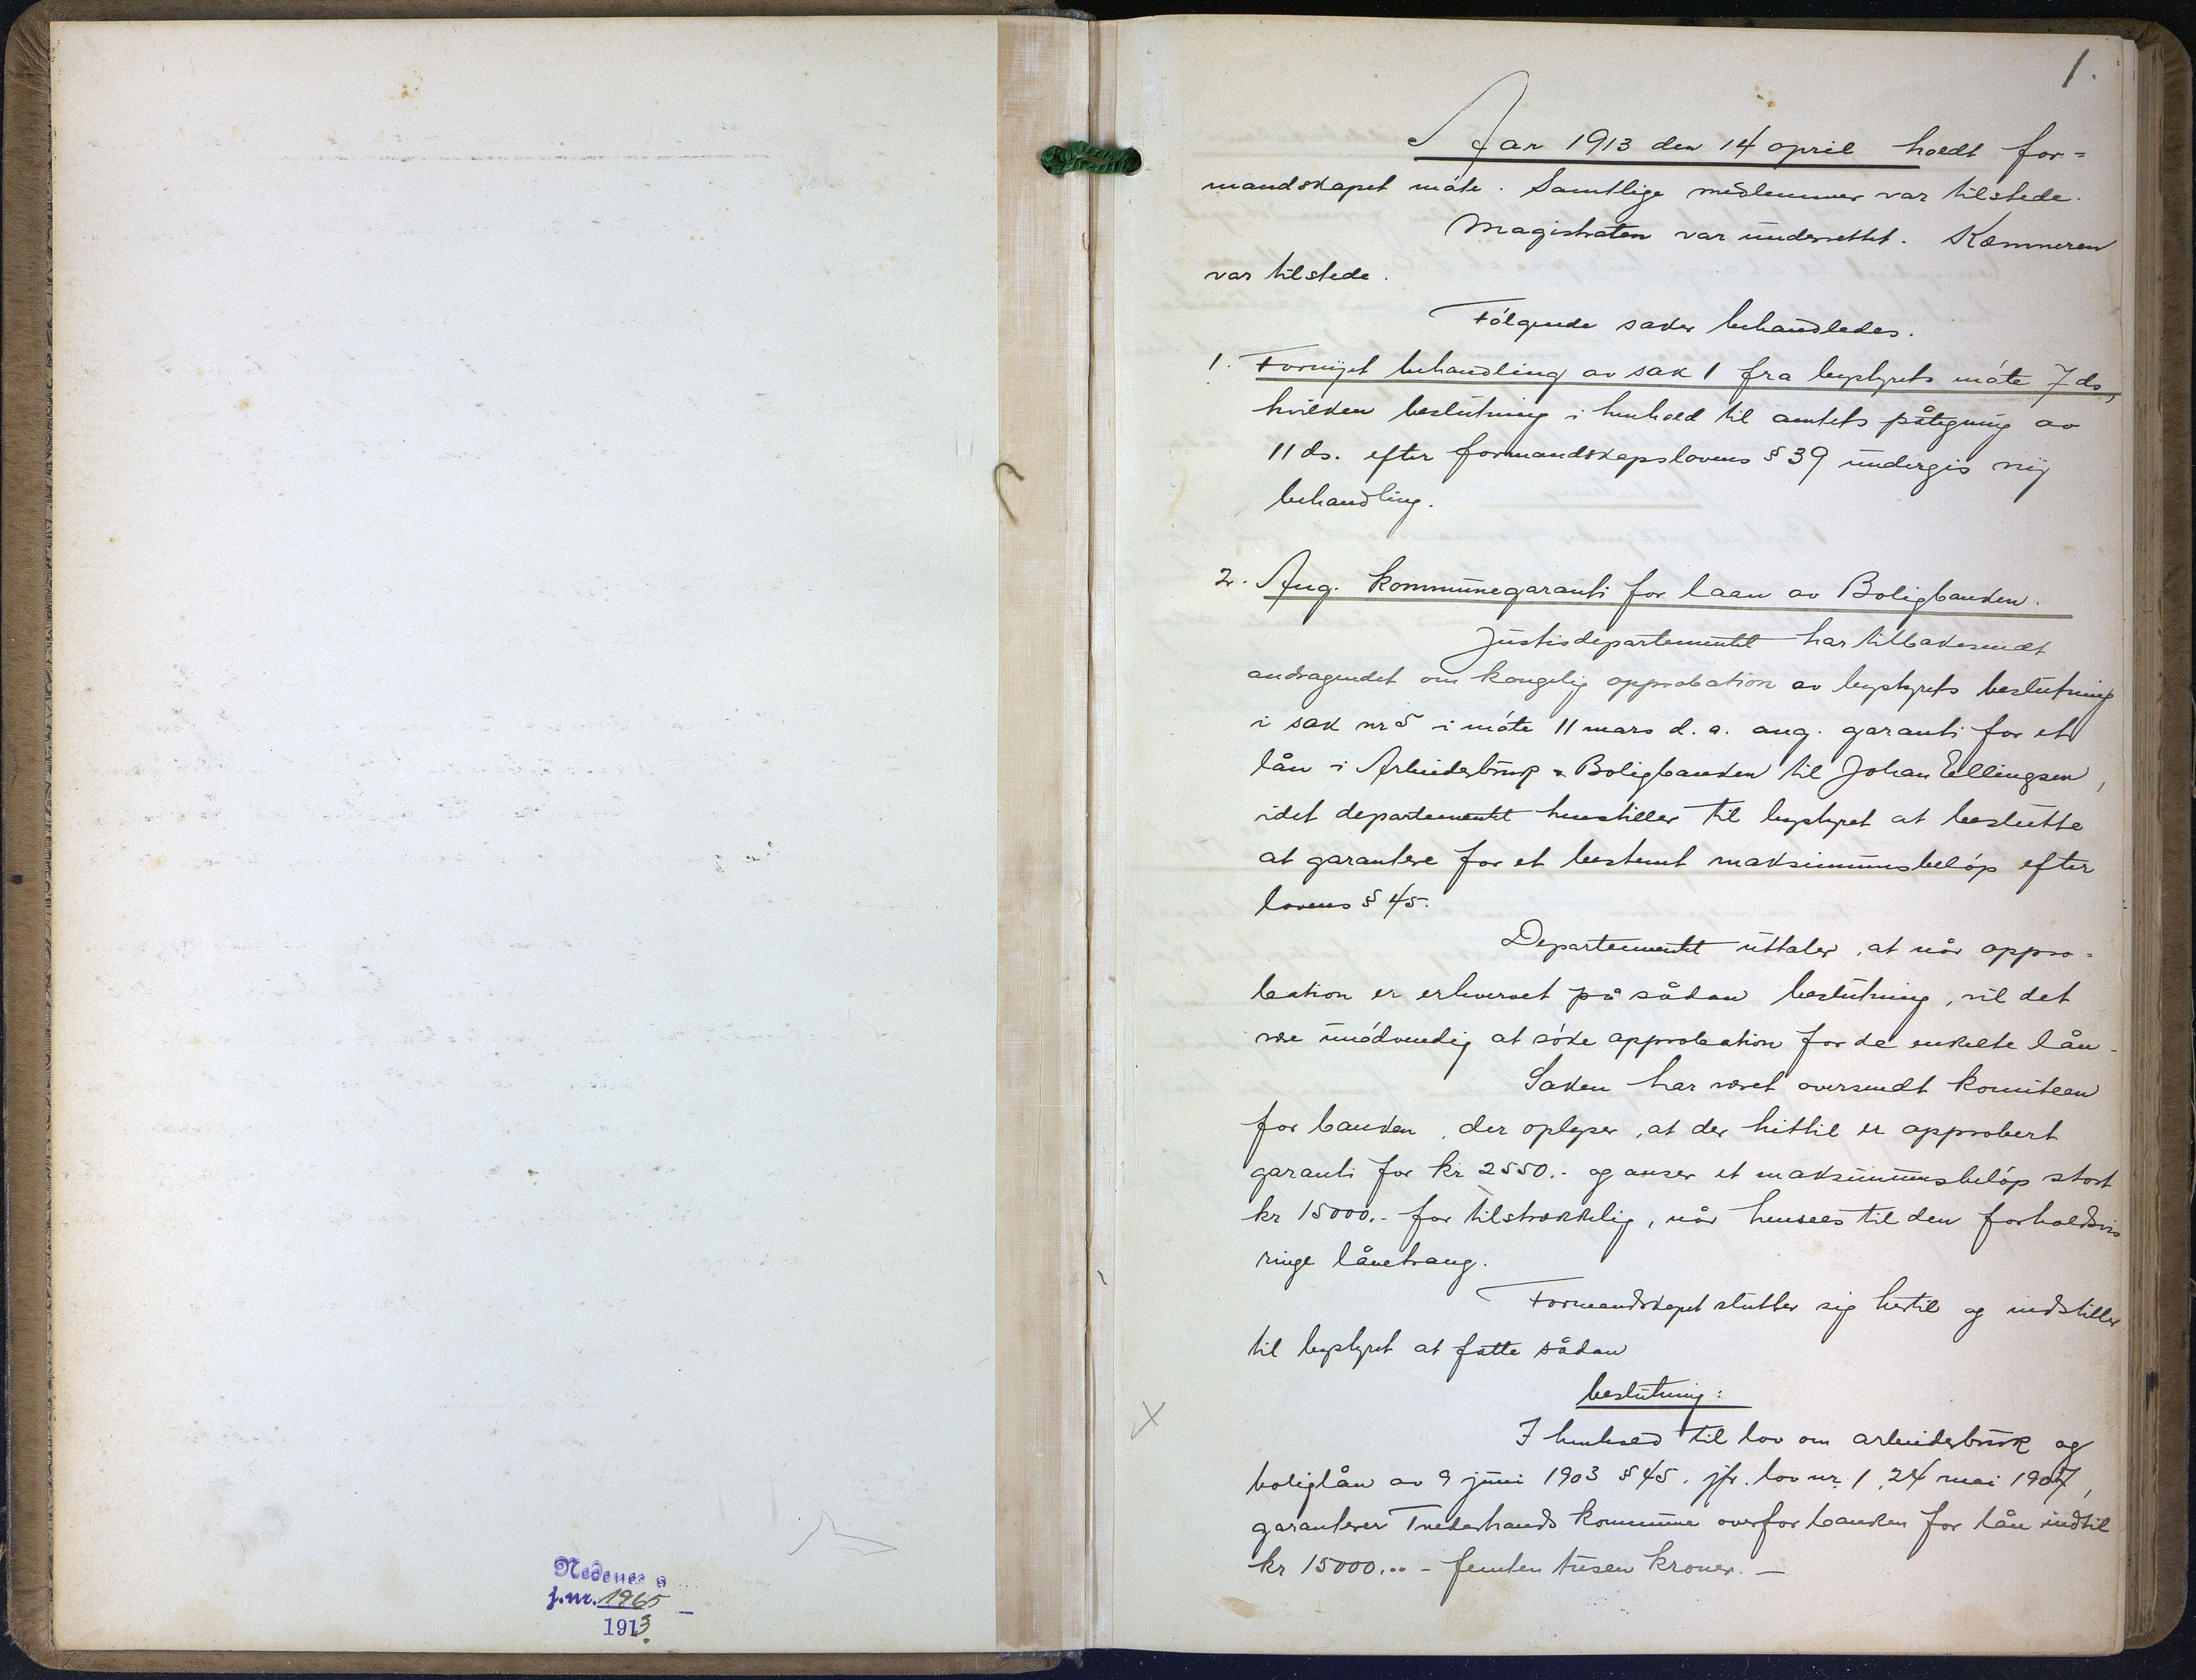 Nedenes a
j.nr. 1965
1913
1.
Aar 1913 den 14 april holdt for=
mandskapet møte. Samtlige medlemmer var tilstede.
Magistraten var underrettet. Kæmneren
var tilstede.
Følgende saker behandledes.
1. Fornyet behandling av sak 1 fra bystyrets møte 7 ds,
hvilken beslutning i henhold til amtets påtegning av
11 ds. efter formandskapslovens § 39 undergis ny
behandling.
2. Ang. kommunegaranti for laan av Boligbanken.
Justisdepartementet har tilbakesendt
andragendet om kongelig approbation av bystyrets beslutning
i sak nr 5 i møte 11 mars d. a. ang. garanti for et
lån i Arbeiderbruk & Boligbanken til Johan Ellingsen,
idet departementet henstiller til bystyret at beslutte
at garantere for et bestemt maksimumsbeløp efter
lovens § 45.
Departementet uttaler, at når appro=
bation er erhvervet på sådan beslutning, vil det
være unødvendig at søke approbation for de enkelte lån.
Saken har været oversendt komiteen
for banken, der oplyser, at der hittil er approbert
garanti for kr 2550.- og anser et maksimumsbeløp stort
kr 15000.- for tilstrækkelig, når hensees til den forholdsvis
ringe lånetrang.
Formandskapet slutter sig hertil og indstiller
til bystyret at fatte sådan
beslutning:
I henhold til lov om arbeiderbruk og
boliglån av 9 juni 1903 § 45, jfr. lov nr. 1, 24 mai 1907,
garanterer Tvedestrands kommune overfor banken for lån indtil
kr 15000.. - femten tusen kroner. -